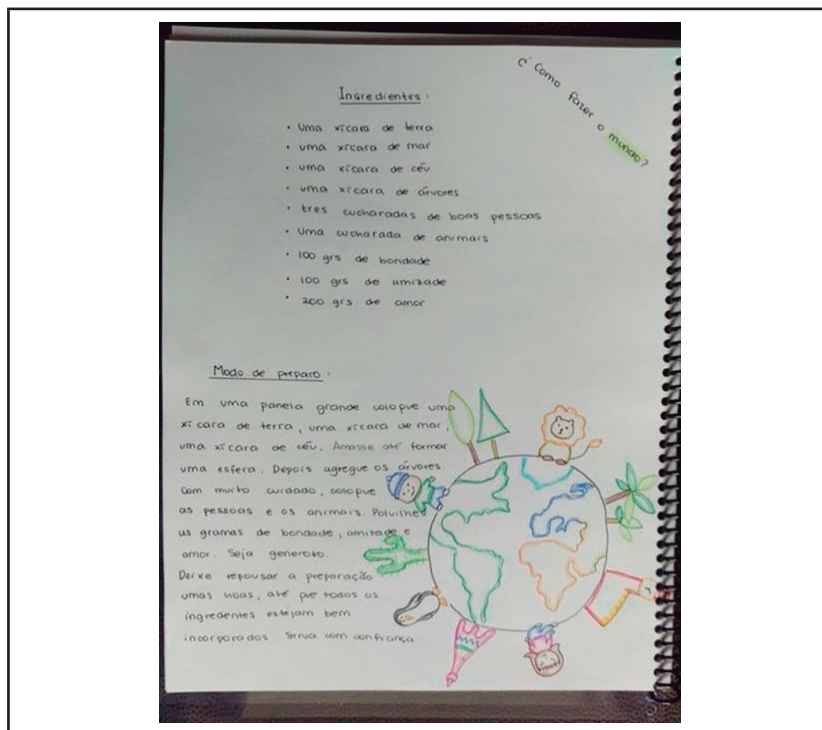 ¿Como fazer o mundo?
Ingredientes:
• Uma xícara de terra
• uma xícara de mar
• uma xícara de céu
• uma xícara de árvores
• tres cucharadas de boas pessoas
• Uma cucharada de animais
• 100 grs de bondade
• 100 grs de amizade
• 200 grs de amor
Modo de preparo:
Em uma panela grande coloque uma
xícara de terra, uma xícara de mar,
uma xícara de céu. Amasse até formar
uma esfera. Depois agregue os árvores.
Com muito cuidado, coloque
as pessoas e os animais. Polvilhe
as gramas de bondade, amizade e
amor. Seja generoto.
Deixe repousar a preparação
umas horas, até que todos os
ingredentes estejam bem
incorporados. Sirva com confiança